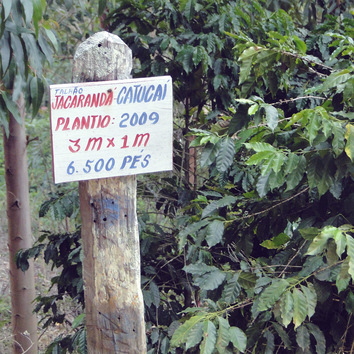 TALHÃO
JACARANDÁ-CATUCAI
PLANTIO: 2009
3 M X 1 M
6.500 PÉS